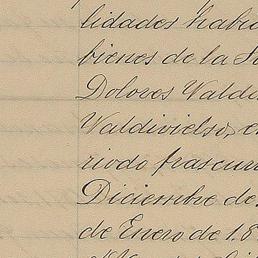 lidades habid
bienes de la S
Dolores Valdi
Waldivielso, e
riodo trascurr
Diciembre de
de Enero de 18